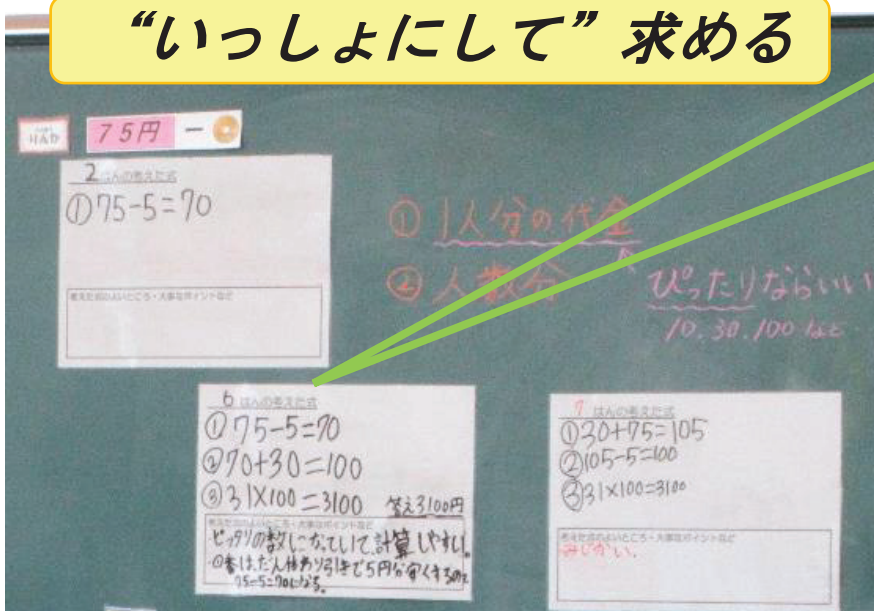 “いっしょにして”求める
りんか
75円 －
2 はんの考えた式
①75-5=70
考えた式のよいところ・大事なポイントなど
① 1人分の代金
② 人数分
ぴったりならいい
10.30.100 など
6 はんの考えた式
①75-5=70
②70+30=100
③31×100=3100 答え3100円
考えた式のよいところ・大事なポイントなど
ピッタリの数になっていて計算しやすい。
①番は、だん体わり引きで5円分安くするので
75-5=70になる。
7 はんの考えた式
①30+75=105
②105-5=100
③31×100=3100
考えた式のよいところ・大事なポイントなど
みじかい。